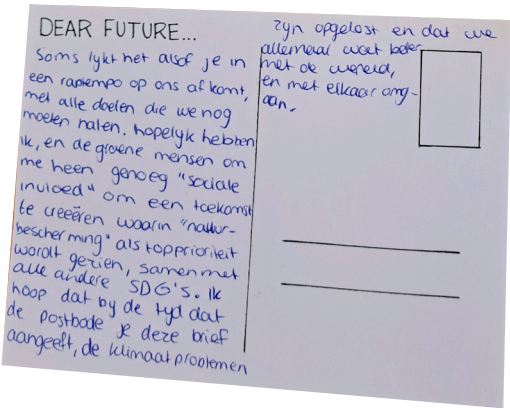 DEAR FUTURE...
Soms lijkt het alsof je in
een raptempo op ons af komt,
met alle doelen die we nog
moeten halen. hopelijk hebben
ik, en de groene mensen om
me heen genoeg "sociale
invloed" om een toekomst
te creeëren waarin "natuur-
bescherming" als topprioriteit
wordt gezien, samen met
alle andere SDG's. Ik
hoop dat bij de tijd dat
de postbode je deze brief
aangeeft, de klimaatproblemen
zijn opgelost en dat we
allemaal wat beter
met de wereld,
en met elkaar omg-
aan.